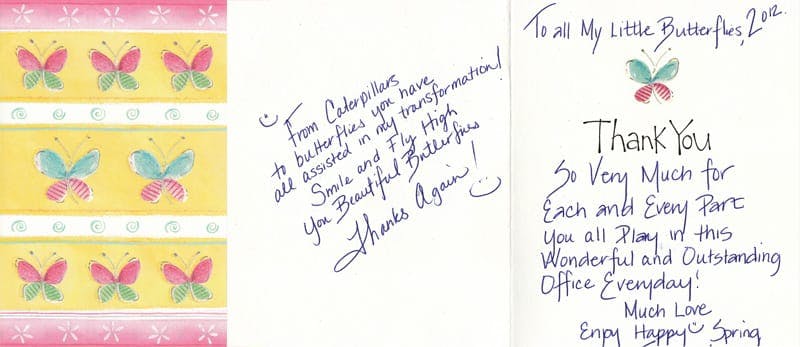 From Caterpillars
to butterflies you have
all assisted in my transformation!
Smile and Fly High
You Beautiful Butterflies
Thanks Again!
To all My Little Butterflies, 2012.
Thank You
So Very Much for
Each and Every Part
you all Play in this
Wonderful and Outstanding
Office Everyday!
Much Love
Enjoy Happy Spring